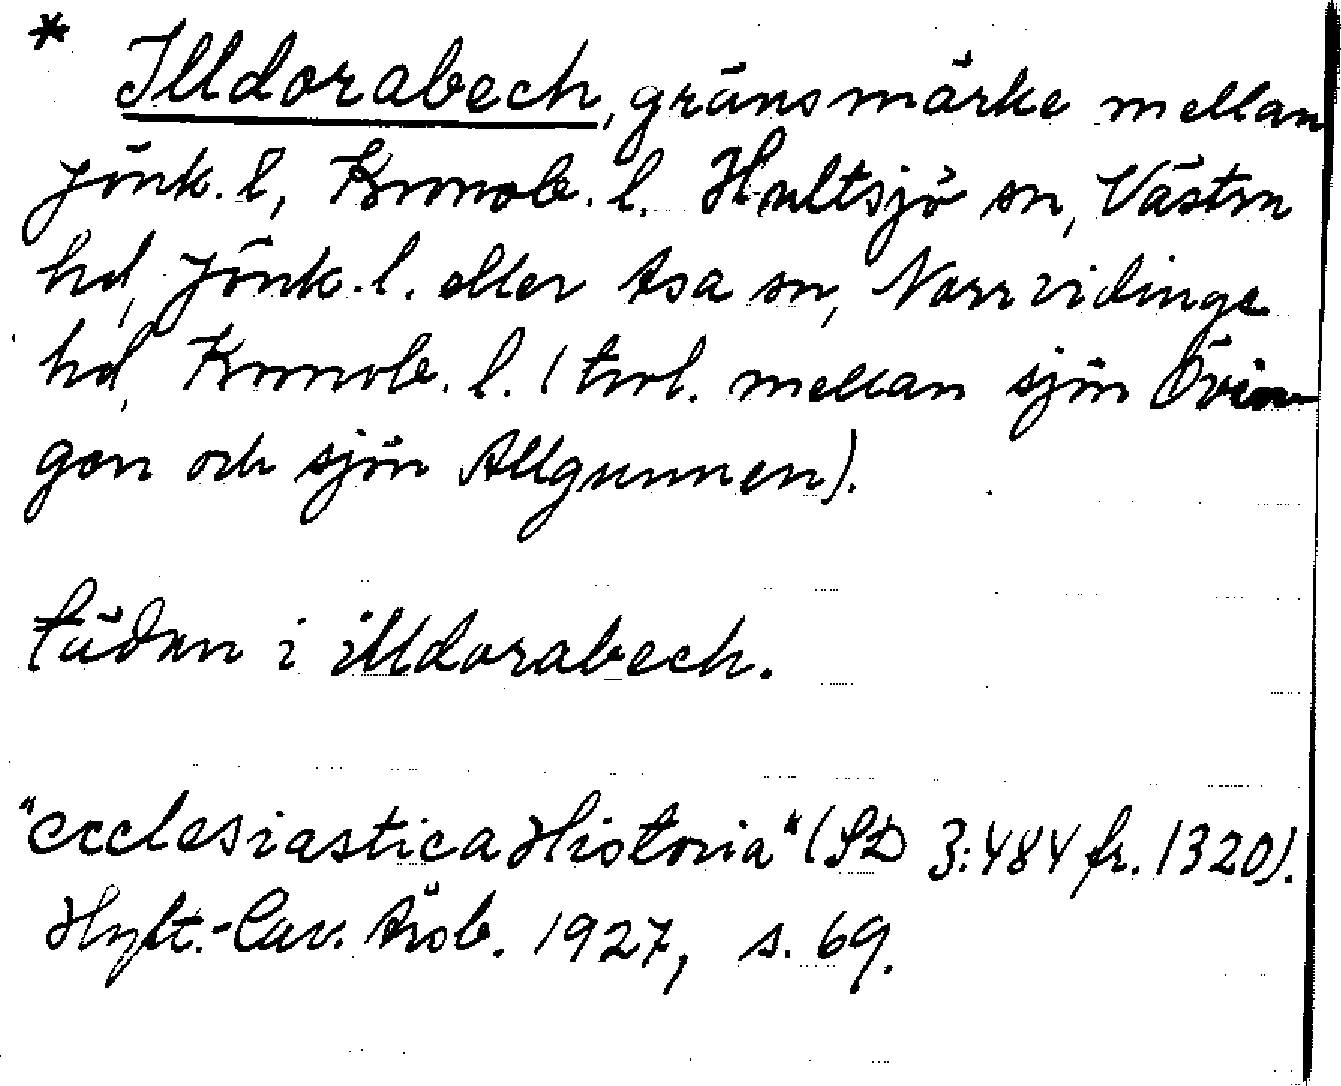 * Illdorabech, gränsmärke mellan
Jönk. l, Kronob. l. Hultsjö sn, Västra
hd, Jönk. l. eller Asa sn, Norrvidinge
hd, Kronob. l. (trol. mellan sjön Övin-
gen och sjön Allgunnen).
sädan i illdorabech.
"ecclesiastica Historia" (SD 3:484 fr. 1320).
Hylt.-Cav. Årsb. 1927, s. 69.